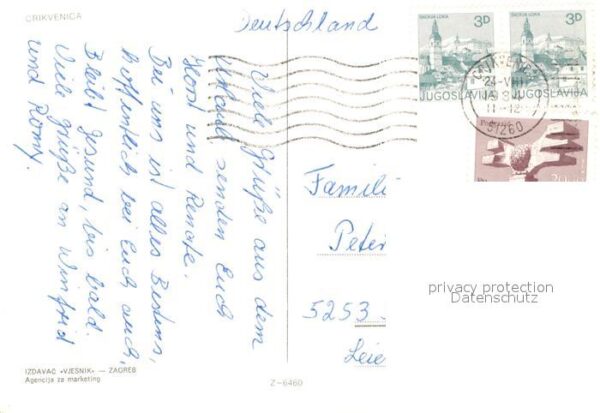 CRIKVENICA
Deutschland
Viele Grüße aus dem
Urlaub senden Euch
Horst und Renate.
Bei uns ist alles Bestens,
hoffentlich bei Euch auch,
Bleibt gesund, bis bald.
Viele Grüße an Winfried
und Romy.
ŠKOFJA LOKA
3D
JUGOSLAVIJA
ŠKOFJA LOKA
3D
JUGOSLAVIJA
24-VIII
11-12
51260
Familie
Peter
5253
privacy protection
Datenschutz
IZDAVAČ «VJESNIK» — ZAGREB
Agencija za marketing
Z-6460